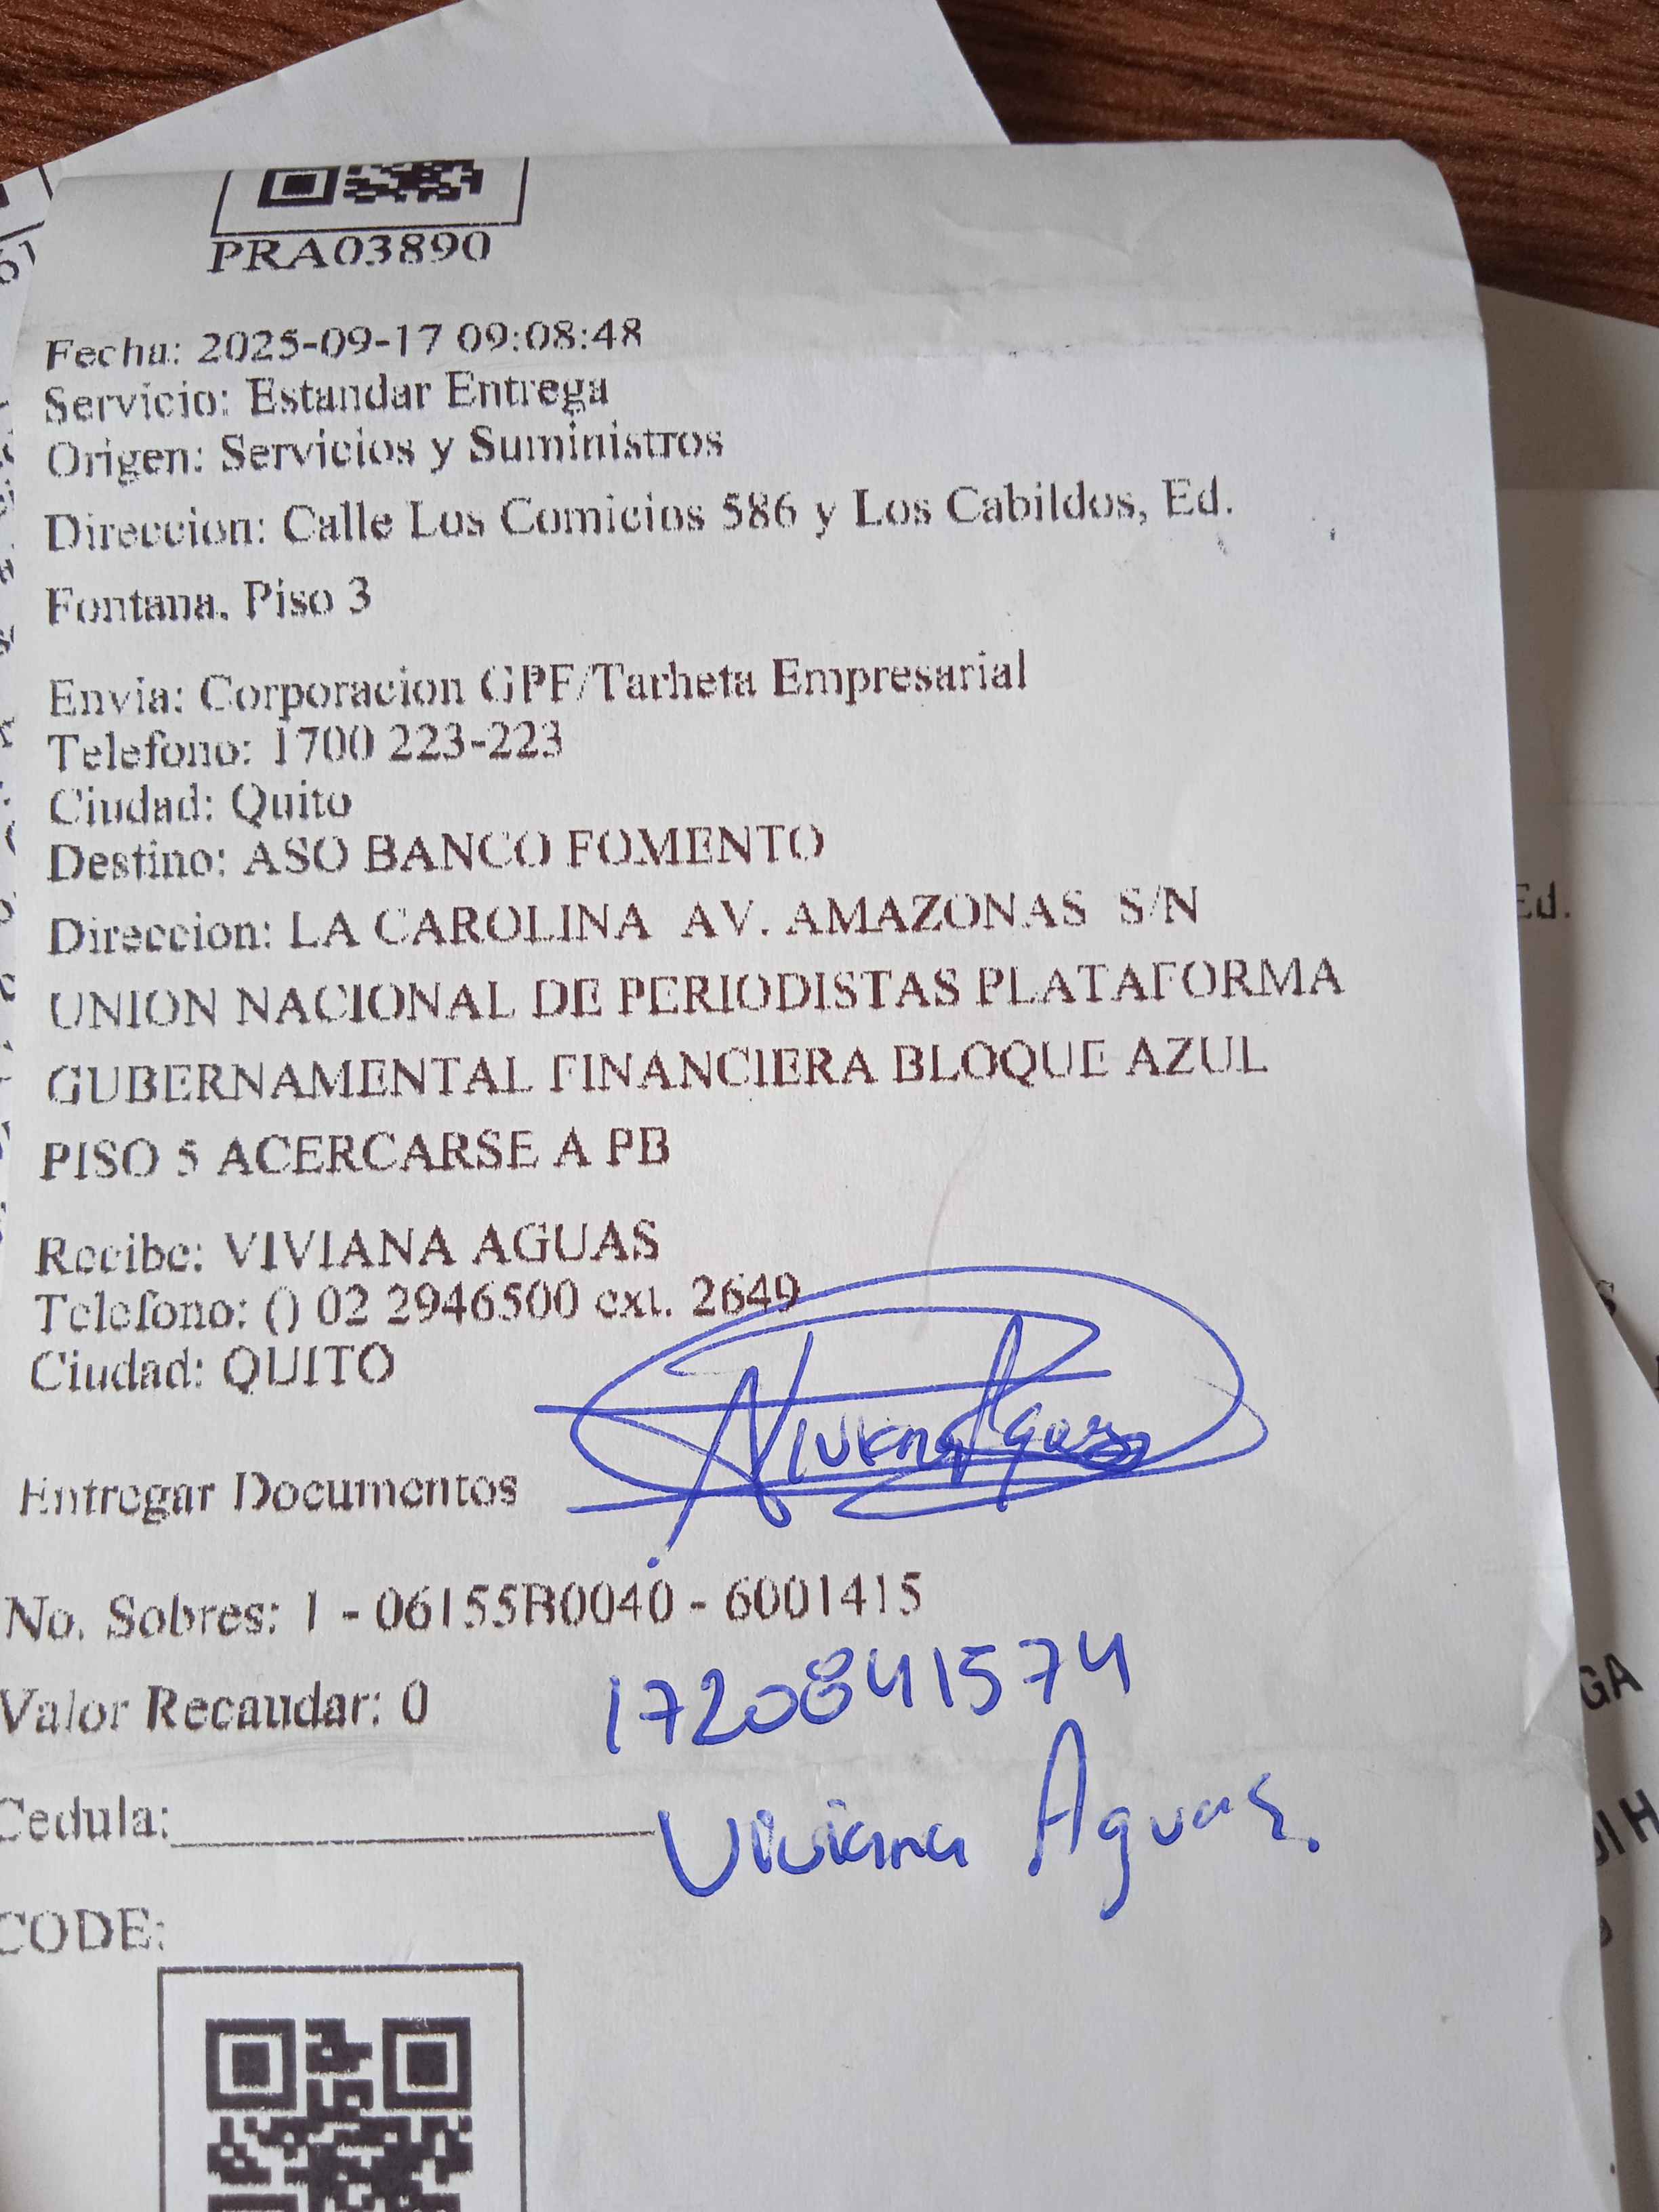 PRA03890
Fecha: 2025-09-17 09:08:48
Servicio: Estandar Entrega
Origen: Servicios y Suministros
Direccion: Calle Los Comicios 586 y Los Cabildos, Ed.
Fontana, Piso 3
Envia: Corporacion GPF/Tarheta Empresarial
Telefono: 1700 223-223
Ciudad: Quito
Destino: ASO BANCO FOMENTO
Direccion: LA CAROLINA AV. AMAZONAS S/N
UNION NACIONAL DE PERIODISTAS PLATAFORMA
GUBERNAMENTAL FINANCIERA BLOQUE AZUL
PISO 5 ACERCARSE A PB
Recibe: VIVIANA AGUAS
Telefono: () 02 2946500 ext. 2649
Ciudad: QUITO
Viviana Aguas
Entregar Documentos
No. Sobres: 1 - 06155B0040 - 6001415
Valor Recaudar: 0
1720841574
Cedula:
Viviana Aguas.
CODE:
Ed.
GA